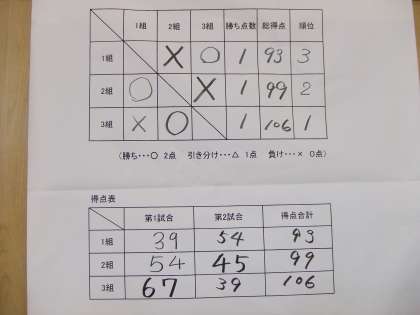 1組 2組 3組 勝ち点数 総得点 順位
1組 × ○ 1 93 3
2組 ○ × 1 99 2
3組 × ○ 1 106 1
(勝ち・・・○ 2点 引き分け・・・△ 1点 負け・・・× 0点)
得点表
第1試合 第2試合 得点合計
1組 39 54 93
2組 54 45 99
3組 67 39 106